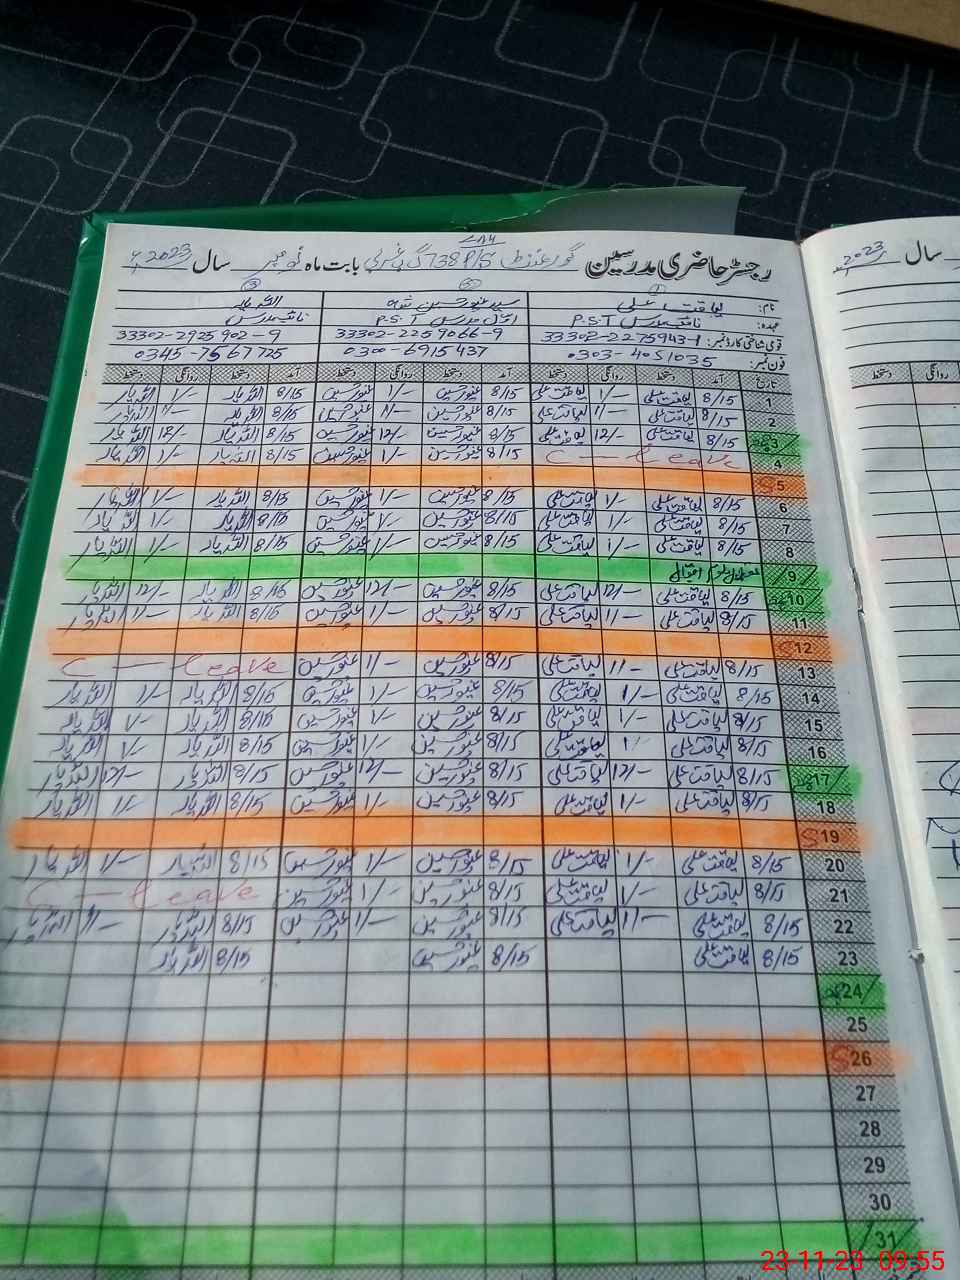 ۷۸۶
رجسٹر حاضری مدرسین گورنمنٹ P/S 738 گ ب بابت ماہ نومبر سال 2023ء
① ② ③
نام: لیاقت علی سید غیور حسین شاہ اللہ یار
عہدہ: نائب مدرس P.S.T اول مدرس P.S.T نائب مدرس
قومی شناختی کارڈ نمبر: 33302-2275943-1 33302-2259066-9 33302-2925902-9
فون نمبر: 0303-4051035 0300-6915437 0345-7567725
تاریخ آمد دستخط روانگی دستخط آمد دستخط روانگی دستخط آمد دستخط روانگی دستخط
1 8/15 لیاقت علی 1/- لیاقت علی 8/15 غیور حسین 1/- غیور حسین 8/15 اللہ یار 1/- اللہ یار
2 8/15 لیاقت علی 1/- لیاقت علی 8/15 غیور حسین 1/- غیور حسین 8/15 اللہ یار 1/- اللہ یار
3 8/15 لیاقت علی 12/- لیاقت علی 8/15 غیور حسین 12/- غیور حسین 8/15 اللہ یار 12/- اللہ یار
4 C — Leave 8/15 غیور حسین 1/- غیور حسین 8/15 اللہ یار 1/- اللہ یار
S 5
6 8/15 لیاقت علی 1/- لیاقت علی 8/15 غیور حسین 1/- غیور حسین 8/15 اللہ یار 1/- اللہ یار
7 8/15 لیاقت علی 1/- لیاقت علی 8/15 غیور حسین 1/- غیور حسین 8/15 اللہ یار 1/- اللہ یار
8 8/15 لیاقت علی 1/- لیاقت علی 8/15 غیور حسین 1/- غیور حسین 8/15 اللہ یار 1/- اللہ یار
9 تعطیل یوم اقبال
10 8/15 لیاقت علی 12/- لیاقت علی 8/15 غیور حسین 12/- غیور حسین 8/15 اللہ یار 12/- اللہ یار
11 8/15 لیاقت علی 1/- لیاقت علی 8/15 غیور حسین 1/- غیور حسین 8/15 اللہ یار 1/- اللہ یار
S 12
13 8/15 لیاقت علی 1/- لیاقت علی 8/15 غیور حسین 1/- غیور حسین C — Leave
14 8/15 لیاقت علی 1/- لیاقت علی 8/15 غیور حسین 1/- غیور حسین 8/15 اللہ یار 1/- اللہ یار
15 8/15 لیاقت علی 1/- لیاقت علی 8/15 غیور حسین 1/- غیور حسین 8/15 اللہ یار 1/- اللہ یار
16 8/15 لیاقت علی 1/- لیاقت علی 8/15 غیور حسین 1/- غیور حسین 8/15 اللہ یار 1/- اللہ یار
17 8/15 لیاقت علی 12/- لیاقت علی 8/15 غیور حسین 12/- غیور حسین 8/15 اللہ یار 12/- اللہ یار
18 8/15 لیاقت علی 1/- لیاقت علی 8/15 غیور حسین 1/- غیور حسین 8/15 اللہ یار 1/- اللہ یار
S 19
20 8/15 لیاقت علی 1/- لیاقت علی 8/15 غیور حسین 1/- غیور حسین 8/15 اللہ یار 1/- اللہ یار
21 8/15 لیاقت علی 1/- لیاقت علی 8/15 غیور حسین 1/- غیور حسین C — Leave
22 8/15 لیاقت علی 1/- لیاقت علی 8/15 غیور حسین 1/- غیور حسین 8/15 اللہ یار 1/- اللہ یار
23 8/15 لیاقت علی 8/15 غیور حسین 8/15 اللہ یار
24
25
S 26
27
28
29
30
31
سال 2023
روانگی دستخط
23-11-23 09:55